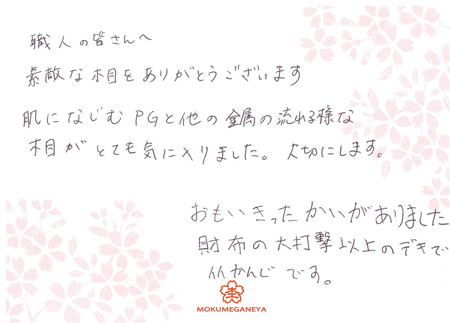 職人の皆さんへ
素敵な木目をありがとうございます
肌になじむPGと他の金属の流れる様な
木目がとても気に入りました。大切にします。
おもいきったかいがありました
財布の大打撃以上のデキで
いいかんじです。
MOKUMEGANEYA